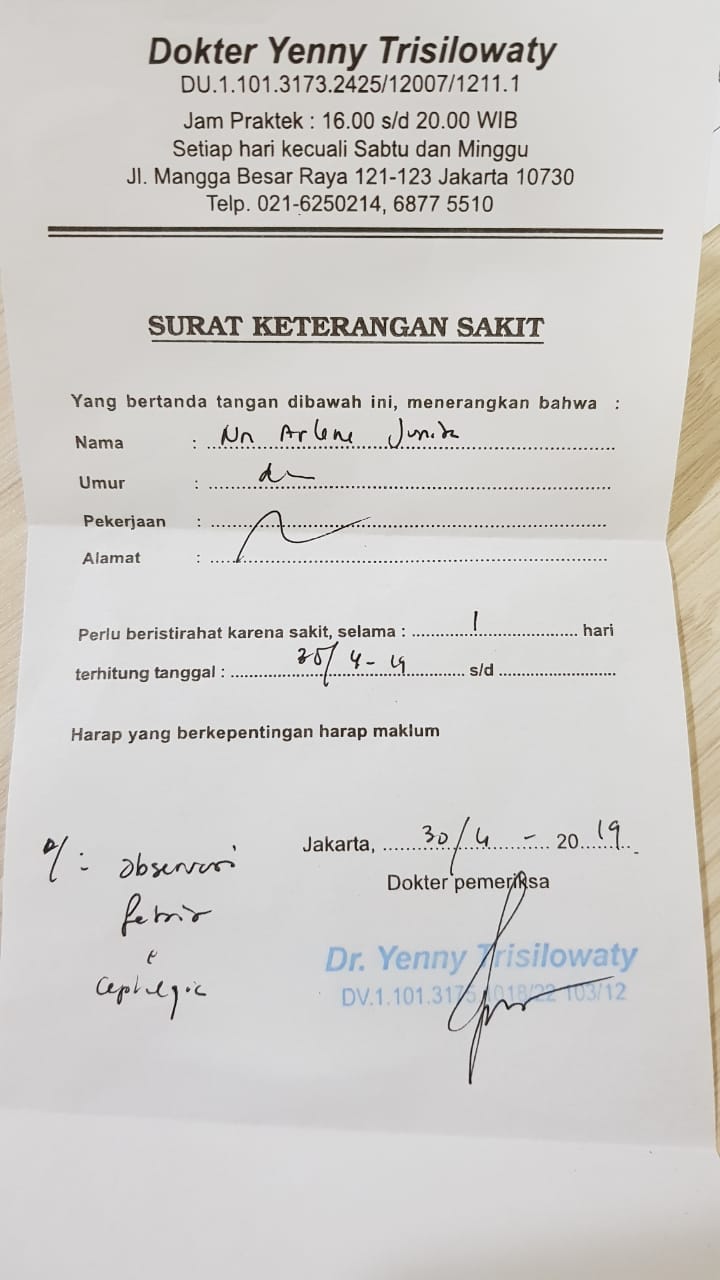 Dokter Yenny Trisilowaty
DU.1.101.3173.2425/12007/1211.1
Jam Praktek : 16.00 s/d 20.00 WIB
Setiap hari kecuali Sabtu dan Minggu
Jl. Mangga Besar Raya 121-123 Jakarta 10730
Telp. 021-6250214, 6877 5510
SURAT KETERANGAN SAKIT
Yang bertanda tangan dibawah ini, menerangkan bahwa :
Nama : Nn Arlene
Umur :
Pekerjaan :
Alamat :
Perlu beristirahat karena sakit, selama : 1 hari
terhitung tanggal : 30/4-19 s/d
Harap yang berkepentingan harap maklum
Jakarta, 30/4 - 2019
Dokter pemeriksa
Observasi
febris
cephalgic
Dr. Yenny Trisilowaty
DV.1.101.3175 1018/22 103/12